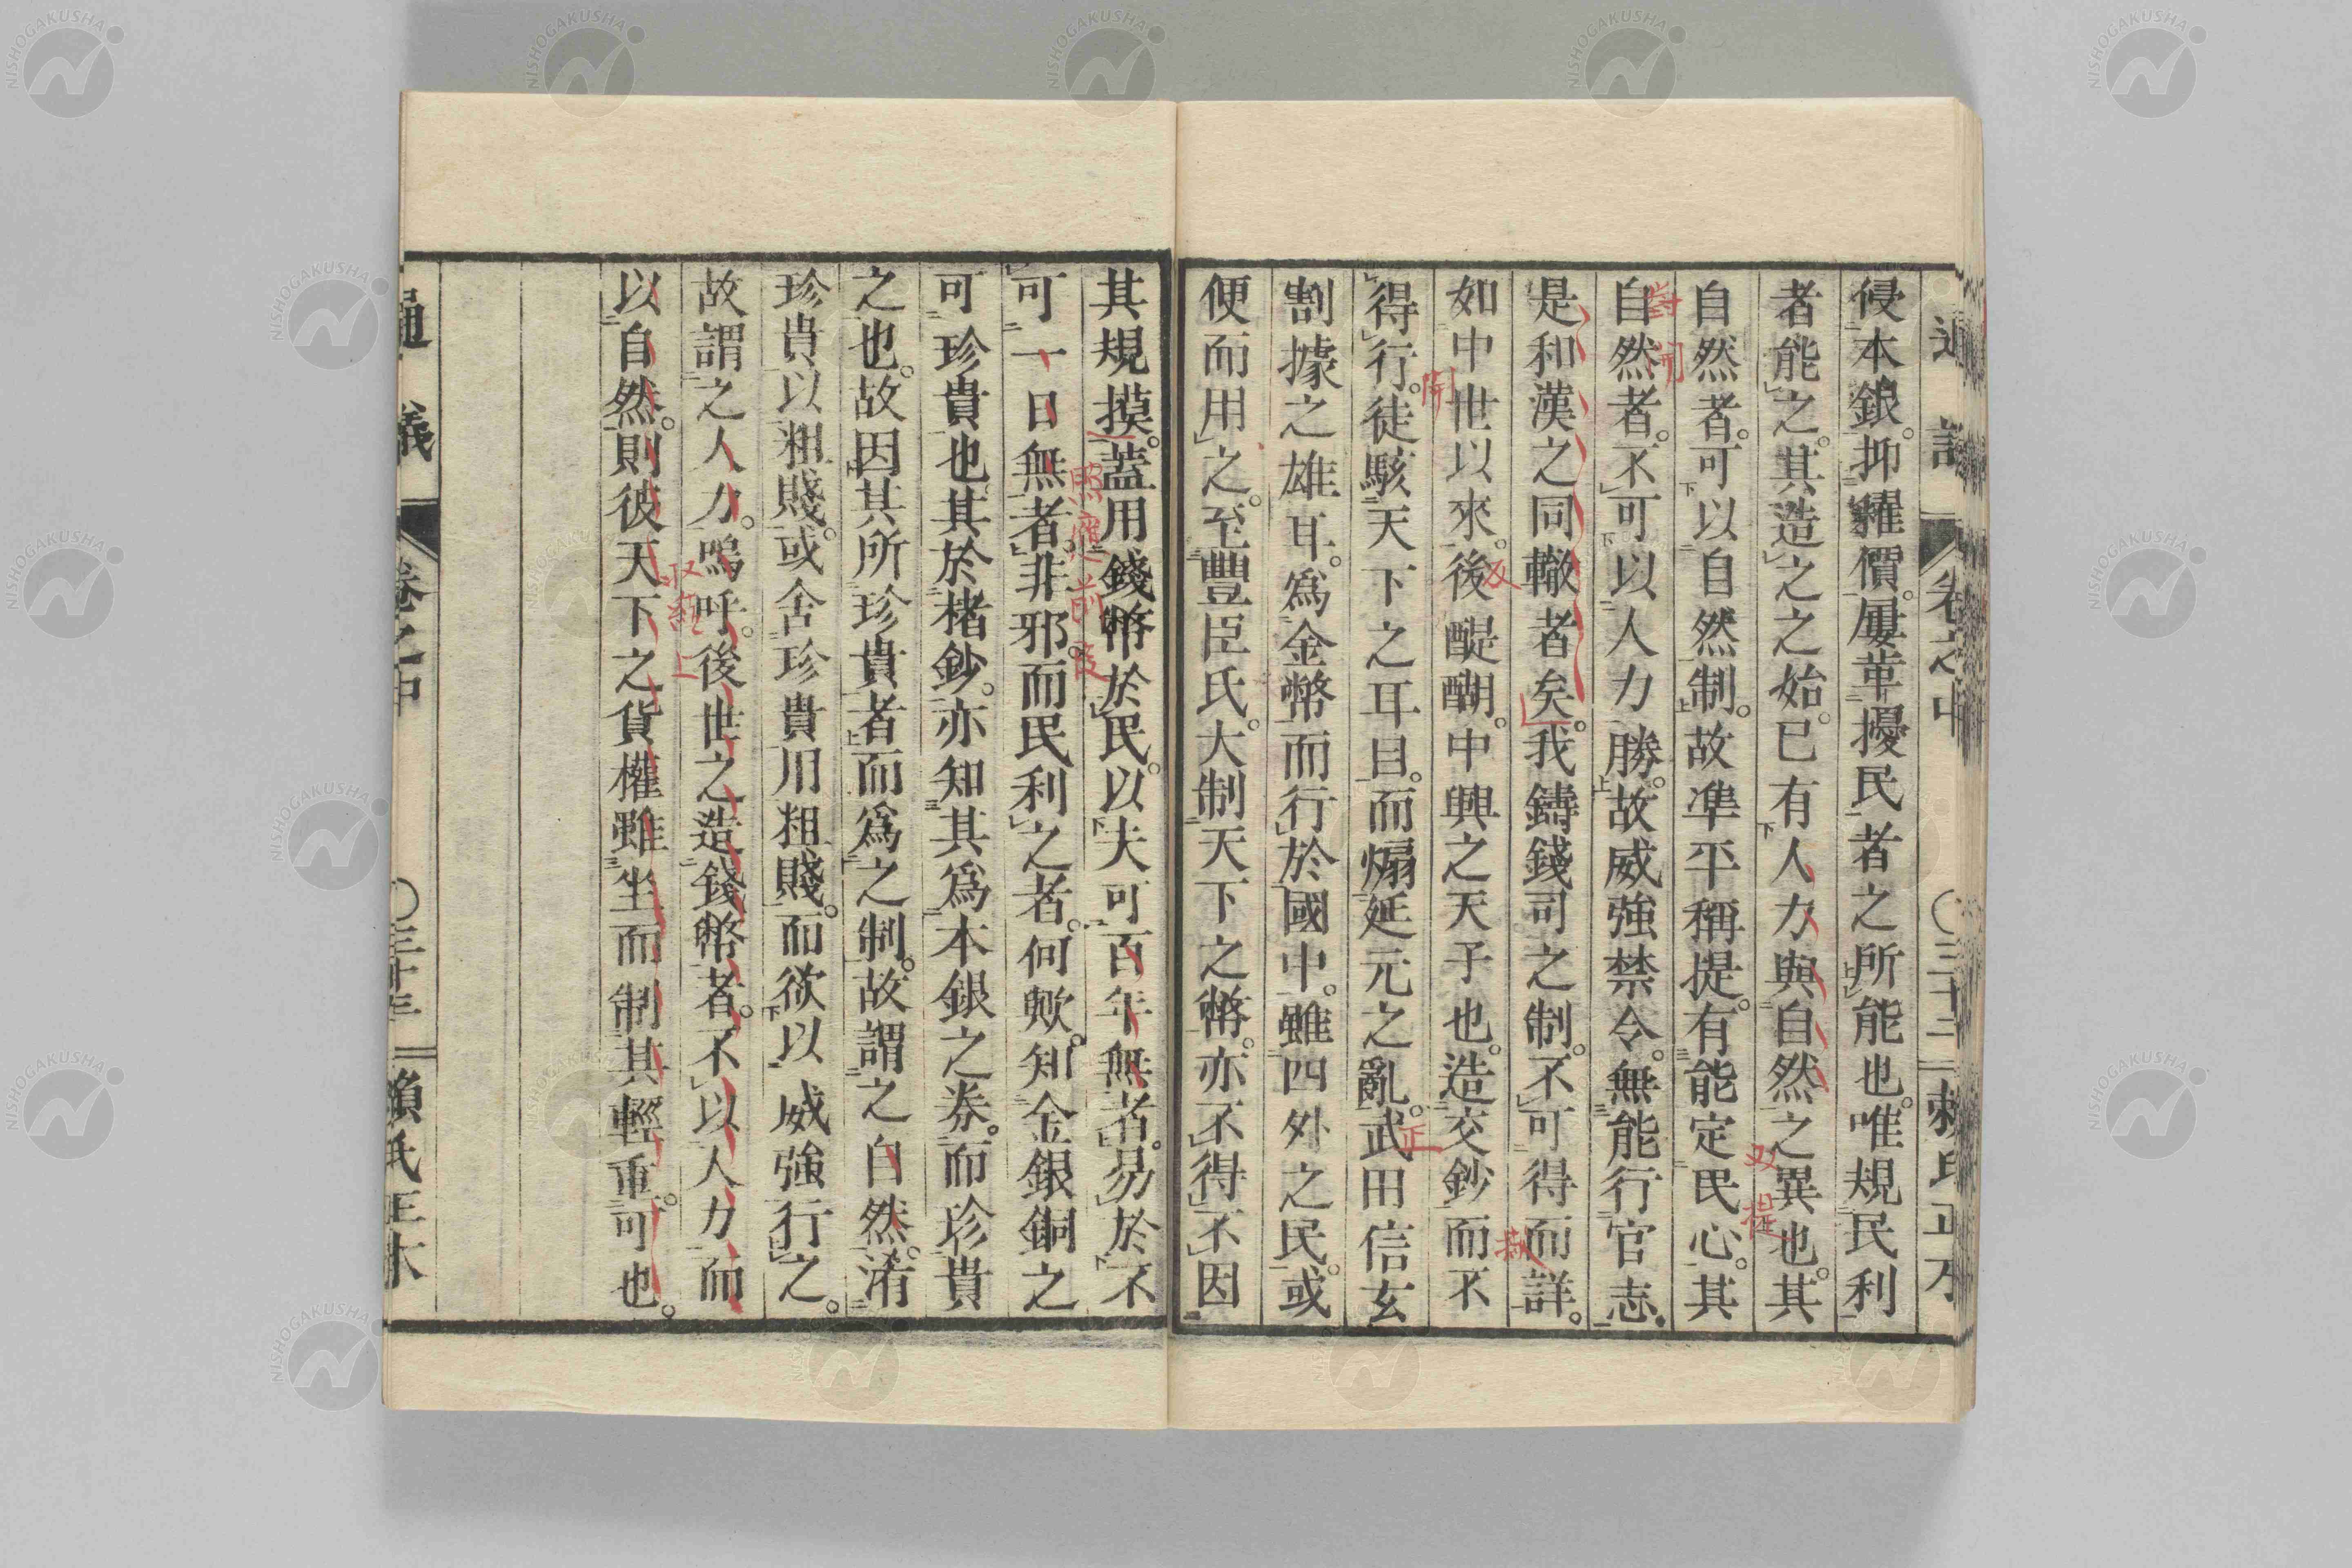 侵本銀。抑糴價。屢革擾民者之所能也。唯規民利
者能之。其造之之始。已有人力與自然之異也。其
自然者。可以自然制。故準平稱提。有能定民心。其
自然者。不可以人力勝。故威強禁令。無能行官志。
是和漢之同轍者矣。我鑄錢司之制。不可得而詳。
如中世以來。後醍醐。中興之天子也。造交鈔而不
得行。徒駭天下之耳目。而煽延元之亂。武田信玄
割據之雄耳。爲金幣而行於國中。雖四外之民。或
便而用之。至豐臣氏。大制天下之幣。亦不得不因
其規摸。蓋用錢幣於民。以夫可百年無者。易於不
可一日無者。非邪。而民利之者。何歟。知金銀銅之
可珍貴也。其於楮鈔。亦知其爲本銀之券。而珍貴
之也。故因其所珍貴者而爲之制。故謂之自然。淆
珍貴以粗賤。或舍珍貴用粗賤。而欲以威強行之。
故謂之人力。嗚呼。後世之造錢幣者。不以人力。而
以自然。則彼天下之貨權雖坐而制其輕重。可也。
通議
卷之中
〇三十三
賴氏正本
對
開
反
正
双提
照應前段
双綰上
NISHOGAKUSHA